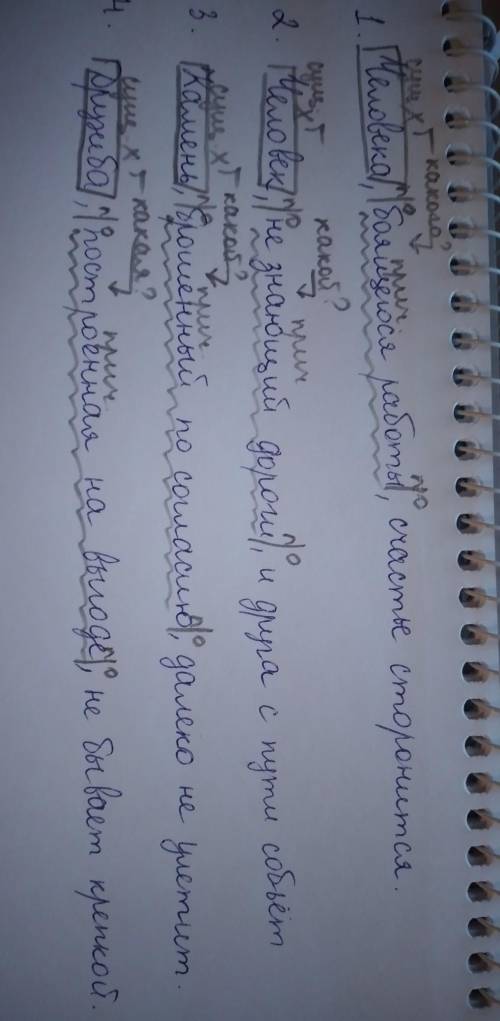 сущ. х какого? прич
1. Человека, боящегося работы, счастье сторонится.
сущ. х какой? прич
2. Человек, не знающий дороги, и друга с пути собьёт
сущ. х какой? прич
3. Камень, брошенный по согласию, далеко не улетит.
сущ. х какая? прич
4. Дружба, построенная на выгоде, не бывает крепкой.